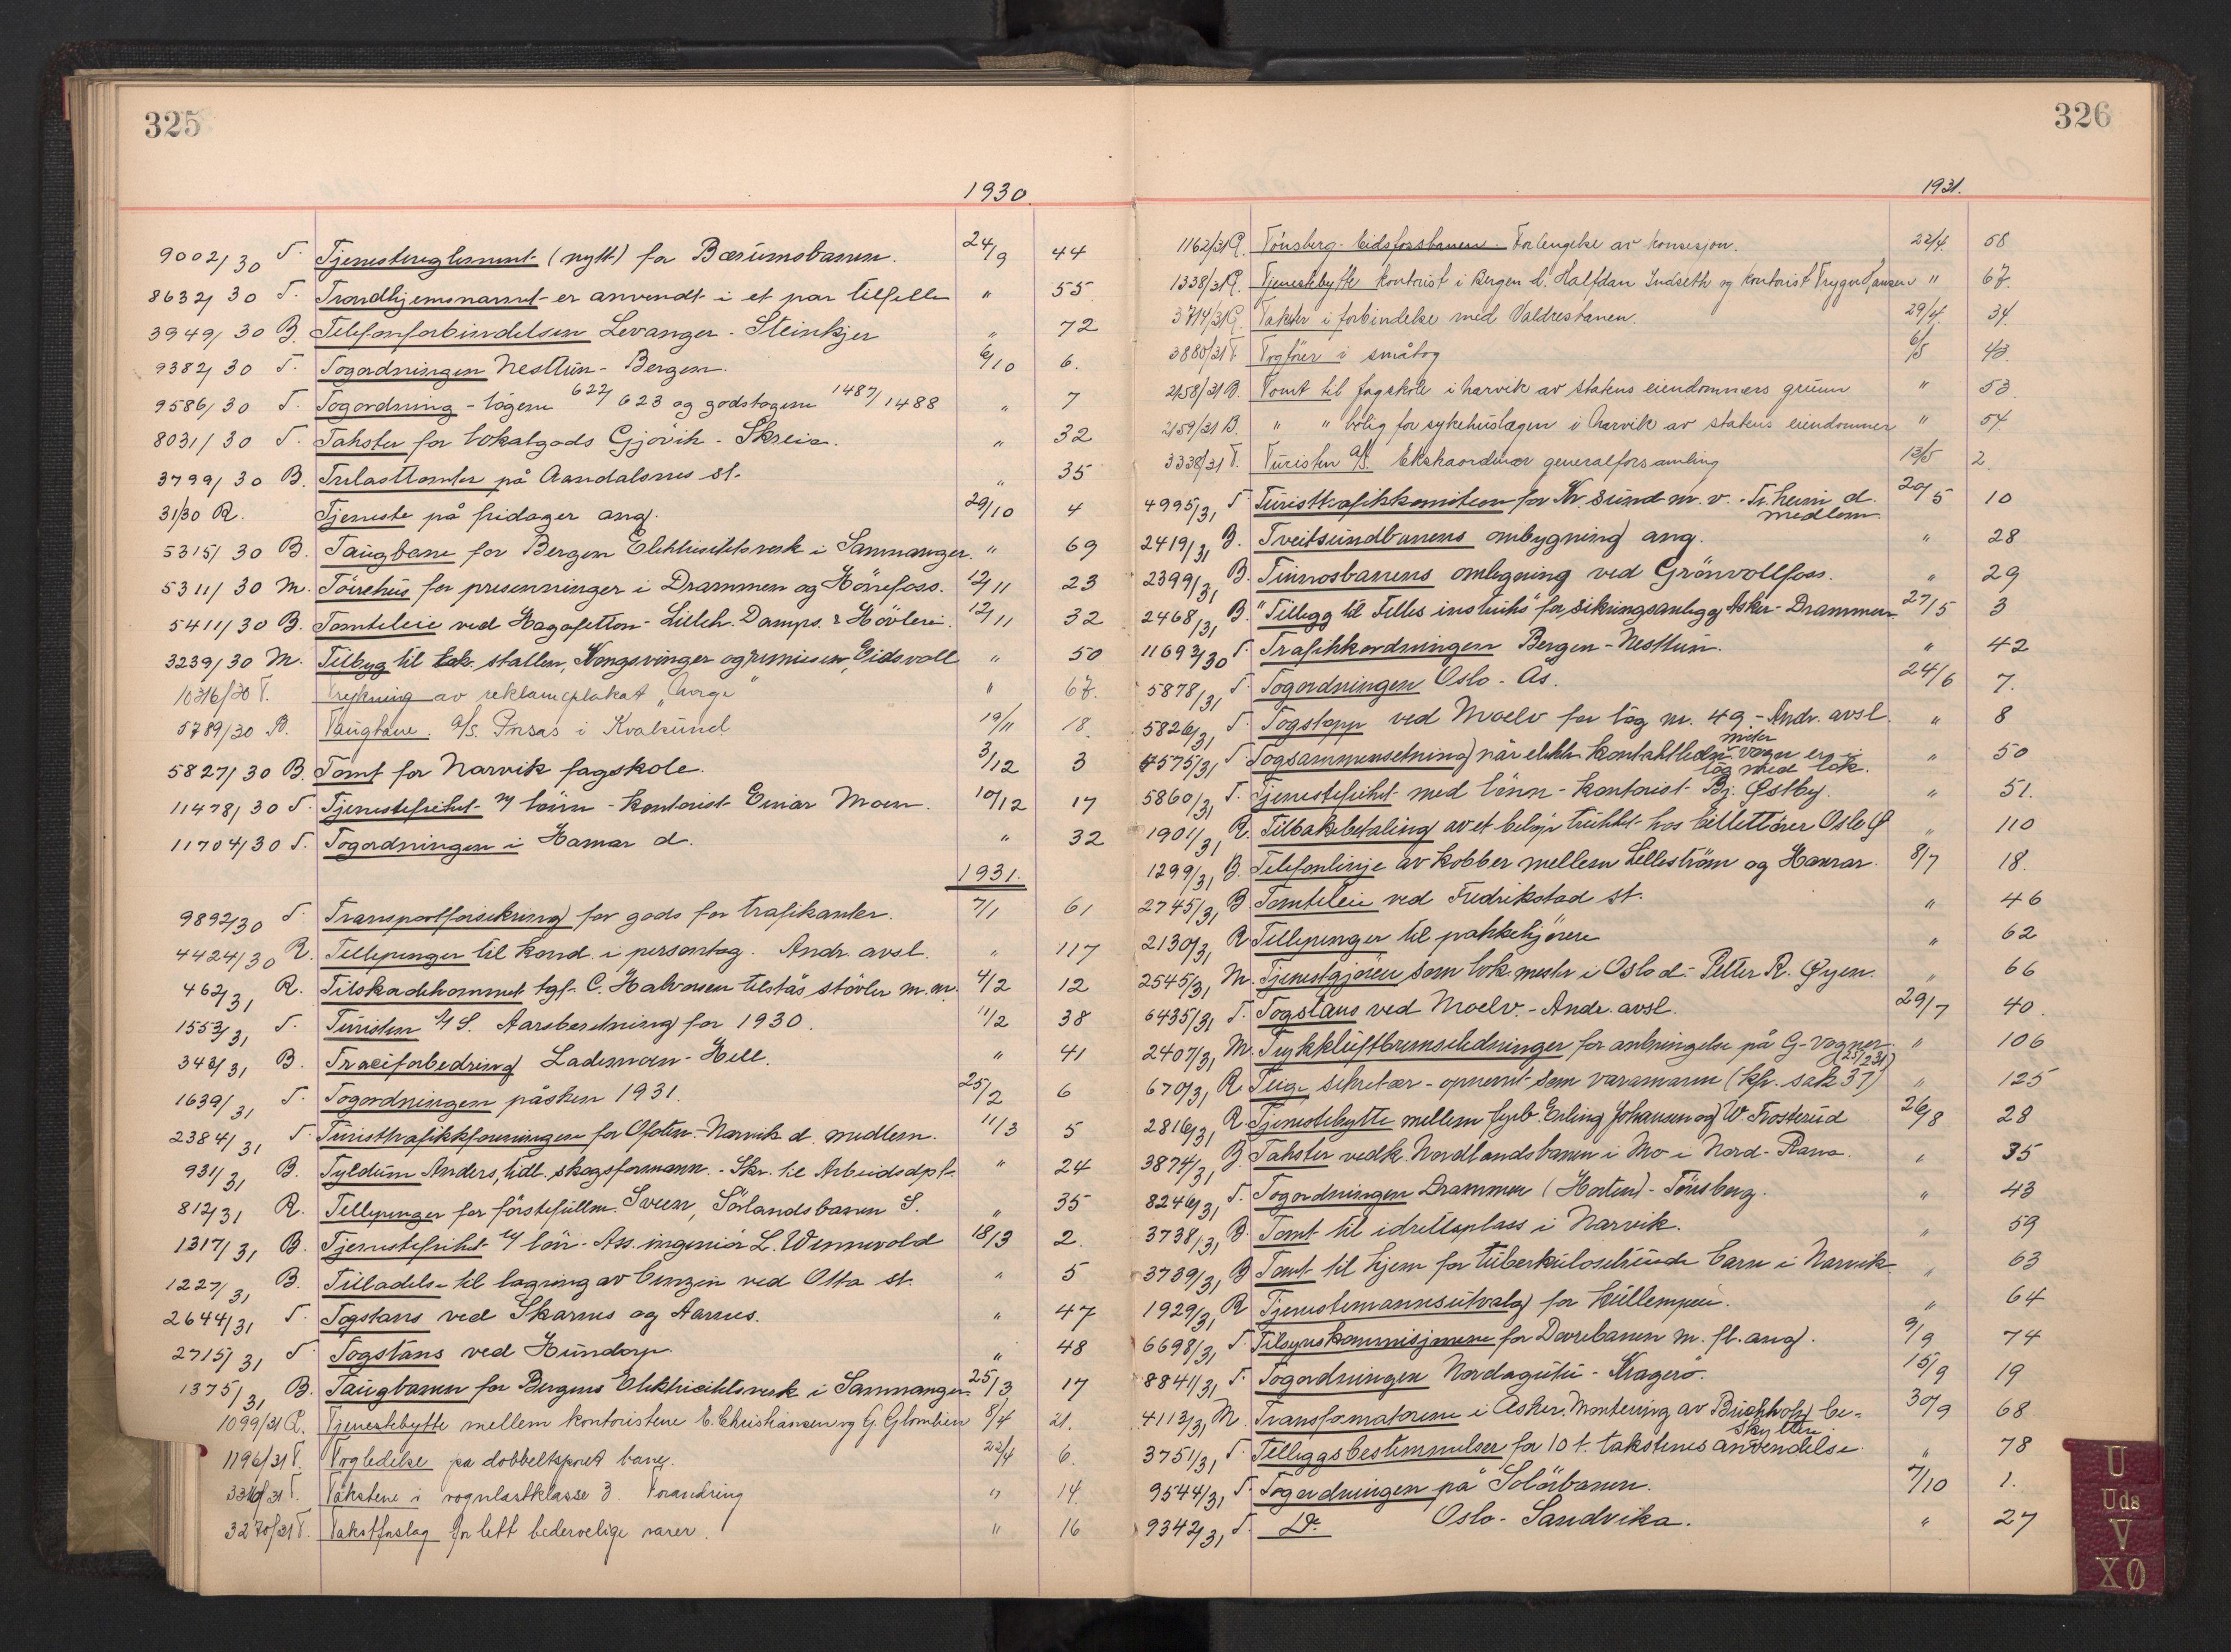 325
1930.
9002/30 T. Tjenestereglement (nytt) for Bærumsbanen. 24/9 44
8632/30 T. Trondhjemsnavnet er anvendt i et par tilfelle " 55
3949/30 B. Telefonforbindelsen Levanger - Steinkjer " 72
9382/30 T. Togordningen Nesttun - Bergen. 6/10 6.
9586/30 T. Togordning - togene 622/623 og godstogene 1487/1488 " 7
8031/30 T. Takster for lokalgods Gjövik - Skreia. " 32
3799/30 B. Trelasttomter på Aandalsnes st. " 35
31/30 R. Tjeneste på fridager ang. 29/10 4
5315/30 B. Taugbane for Bergen Elektricitetsverk i Samnanger. " 69
5311/30 M. Törrehus for presenninger i Drammen og Hönefoss. 12/11 23
5411/30 B. Tomteleie ved Hagasletten - Lilleh. Damps. & Hövleri. 12/11 32
3239/30 M. Tilbyg til lok. stallen, Kongsvinger og remisen, Eidsvoll " 50
10316/30 T. Trykning av reklameplakat "Norge" " 67.
5789/30 B. Taugbane. A/S. Prisas i Kvalsund 19/11 18.
5827/30 B. Tomt for Narvik fagskole. 3/12 3
11478/30 T. Tjenestefrihet m/ lönn - Kontorist Einar Moen. 10/12 17
11704/30 T. Togordningen i Hamar d. " 32
1931.
9892/30 T. Transportforsikring for gods for trafikanter. 7/1 61
4424/30 R. Tellepenger til kond. i persontog. Andr. avsl. " 117
462/31 R. Tilskadekommet tgf. C. Halvorsen tilstås stövler m.m. 4/2 12
1553/31 T. Turisten A/S. Aarsberetning for 1930. 11/2 38
343/31 B. Traciforbedring Lademoen - Hell. " 41
1639/31 T. Togordningen påsken 1931. 25/2 6
2384/31 T. Turisttrafikkforeningen for Ofoten. Narvik d. medlem. 11/3 5
931/31 B. Tyldum Anders, tidl. skogsformann. - Skr. til Arbeidsdpt. " 24
812/31 R. Tellepenger for förstefullm. Sveen, Sörlandsbanen S. " 35
1317/31 B. Tjenestefrihet m/ lön - Ass. ingeniör L. Wennevold 18/3 2.
1227/31 B. Tilladelse til lagring av benzin ved Otta st. " 5
2644/31 T. Togstans ved Skarnes og Aarnes. " 47
2715/31 T. Togstans ved Hundorp. " 48
1375/31 B. Taugbanen for Bergens Elektricitetsverk i Samnanger. 25/3 17
1099/31 R. Tjenestebytte mellem kontoristene E. Christiansen og G. Glombien 8/4 21.
1196/31 T. Togledelse på dobbeltsporet bane. 22/4 6.
3316/31 T. Takstene i vognlastklasse 3. Forandring " 14.
3270/31 T. Takstforslag for lett bedervelige varer. " 16
326
1931.
1162/31 R. Tönsberg - Eidsfossbanen. Forlengelse av konsesjon. 22/4. 58
1338/31 R. Tjenestebytte kontorist i Bergen d. Halfdan Indseth og kontorist Trygve Hansen " 67.
3714/31 G. Takster i forbindelse med Valdresbanen. 29/4. 34.
3880/31 T. Togförer i småtog 6/5 43.
2158/31 B. Tomt til fagskole i Narvik av statens eiendommers grunn " 53.
2159/31 B. " " bolig for sykehuslægen i Narvik av statens eiendommer " 54.
3338/31 T. Turisten A/S. Ekstraordinær generalforsamling 13/5 2.
4995/31 T. Turisttrafikkomiteen for Kr. sund m. v. - Tr.heim d. medlem 20/5 10
2419/31 B. Tveitsundbanens ombygning ang. " 28
2399/31 B. Tinnosbanens omlegning ved Grönvollfoss. " 29
2468/31 B. "Tillegg til Felles instruks" for sikringsanlegg Asker - Drammen 27/5 3
11693/30 T. Trafikkordningen Bergen - Nesttun. " 42
5878/31 T. Togordningen Oslo - Ås. 24/6 7.
5826/31 T. Togstopp ved Moelv for tog nr. 49. - Andr. avsl. " 8
4575/31 T. Togsammensetning når elektr. kontaktledn. vogner er i tog med lok. " 50
5860/31 T. Tjenestefrihet med lönn - Kontorist Bj. Østby. " 51.
1901/31 R. Tilbakebetaling av et belöp trukket hos billettörer Oslo Ø " 110
1299/31 B. Telefonlinje av kobber mellem Lilleström og Hamar. 8/7 18.
2745/31 B. Tomteleie ved Fredrikstad st. " 46
2130/31 R. Tellepenger til pakkekjörere " 62
2545/31 M. Tjenestgjören som lok.mester i Oslo d. - Petter R. Øyen. " 66
6435/31 T. Togstans ved Moelv. - Andr. avsl. 29/7 40.
2407/31 M. Trykkluftbremseledninger for anbringelse på G-vogner. " 106
670/31 R. Teige, sekretær - opnevnt som varamann (kfr. sak 37) (25/2 31) " 125
2816/31 R. Tjenestebytte mellem fyrb. Erling Johansen og W. Frosterud 26/8 28
3874/31 B. Takster vedk. Nordlandsbanen i Mo i Nord-Rana. " 35
8246/31 T. Togordningen Drammen (Horten) - Tönsberg. " 43
3738/31 B. Tomt til idrettsplass i Narvik. " 59
3739/31 B. Tomt til hjem for tuberkulosetruede barn i Narvik " 63
1929/31 R. Tjenestemannsutvalg for Kullempen. " 64
6698/31 T. Tilsynskommisjonene for Dovrebanen m. fl. ang. 9/9 74
8841/31 T. Togordningen Nordagutu - Kragerö. 15/9 19
4113/31 M. Transformatorene i Asker. Montering av Buchholz be- skyttere. 30/9 68
3751/31 T. Tilleggsbestemmelser for 10 t. takstenes anvendelse. " 78
9544/31 T. Togordningen på Solörbanen. 7/10 1.
9342/31 T. Do Oslo - Sandvika. " 27
U
Uds
V
XØ